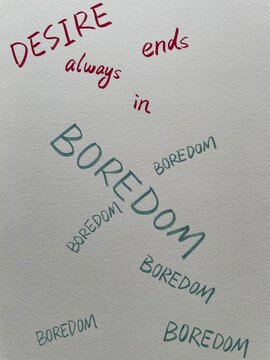 DESIRE ends
always
in
BOREDOM
BOREDOM
BOREDOM
BOREDOM
BOREDOM
BOREDOM